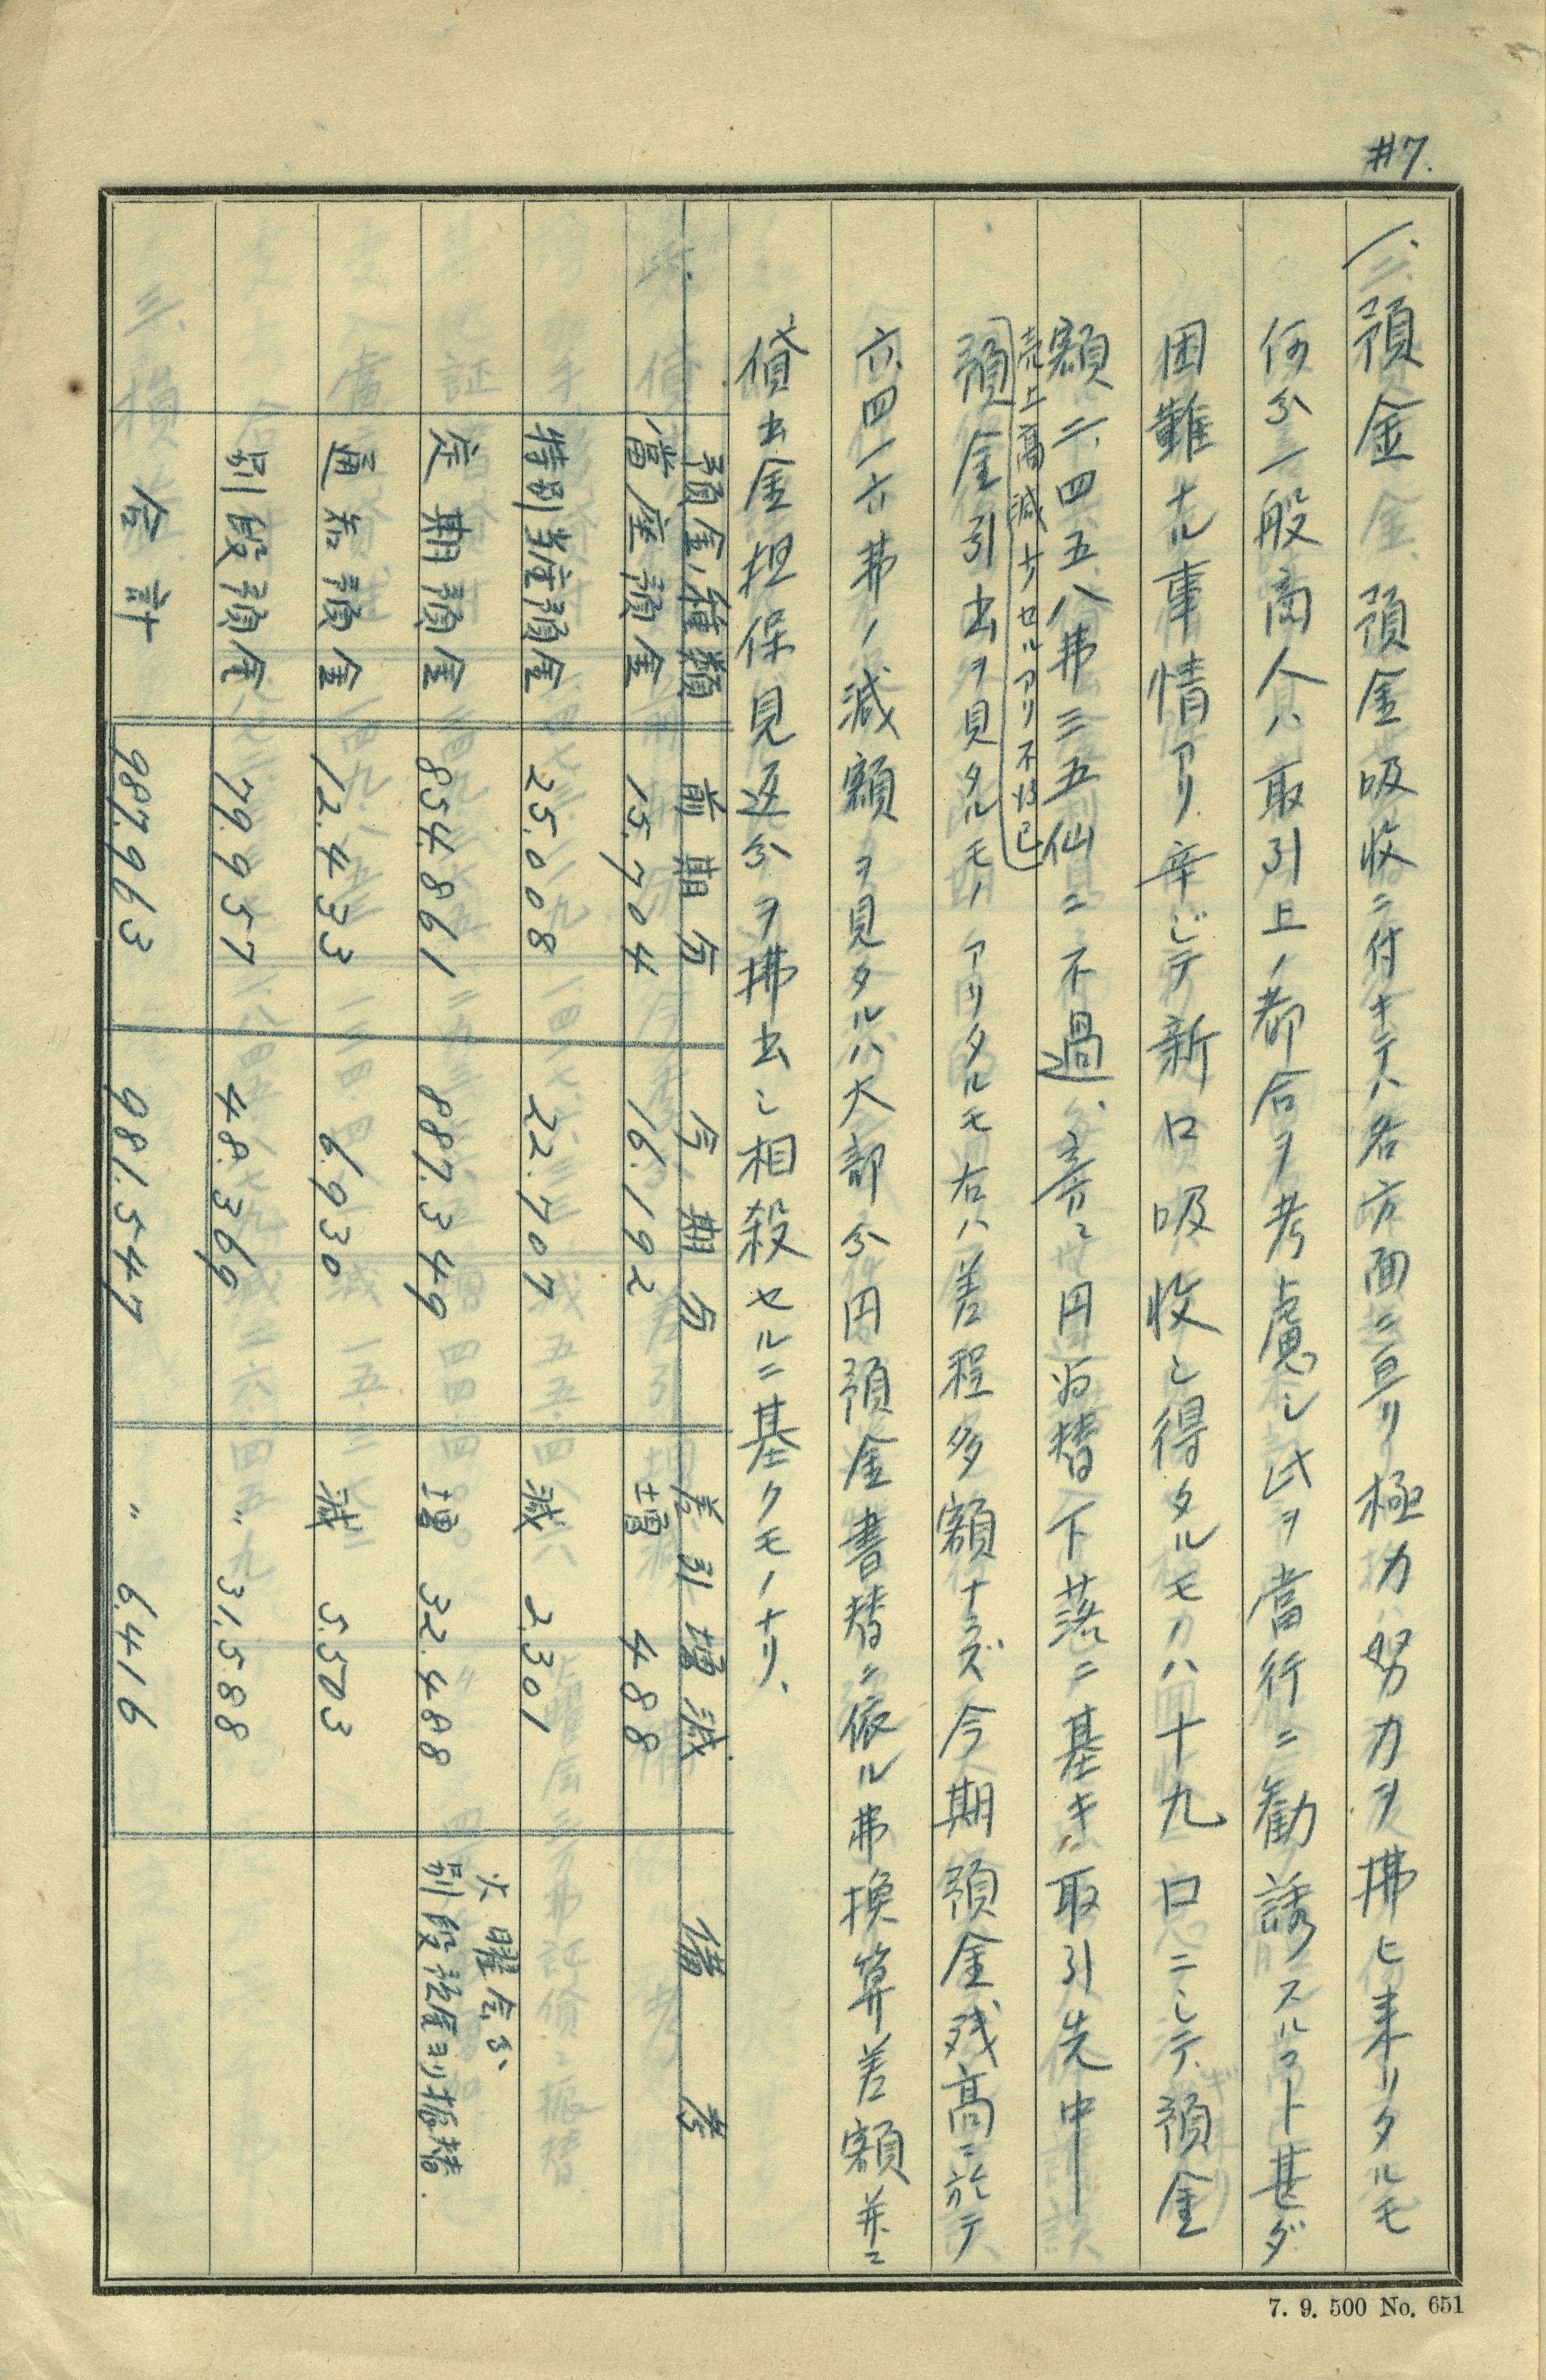 #7.
一、預金 預金吸收ニ付キテハ各方面ニ亘リ極力努力ヲ拂ヒ来リタルモ
何分一般商人ハ取引上ノ都合ヲ考慮シ此ヲ當行ニ勸誘スルコト甚ダ
困難ナル事情アリ辛ジテ新口吸收シ得タルモノハ十九口ニシテ預金
額二、四五八弗三五仙ニ不過、
円為替下落ニ基キ取引先中
売上高減少セルアリ不得已
預金引出ヲ見タルモノアリタルモ右ハ差程多額ナラズ今期預金残高ニ於テ
六、四一六弗ノ減額ヲ見タルハ大部分円預金書替ニ依ル弗換算差額並ニ
貸出金担保見返分ヲ拂出シ相殺セルニ基クモノナリ、
預金種類 前期分 今期分 差引増減 備考
當座預金 15.704 16.192 増 488
特別当座預金 25.008 22.707 減 2.301
定期預金 854.861 887.349 増 32.488 火曜会分 別段預金ヨリ振替.
通知預金 12.433 6.930 減 5.503
別段預金 79.957 48.369 〃 31.588
合計 987.963 981.547 〃 6.416
7. 9. 500 No. 651